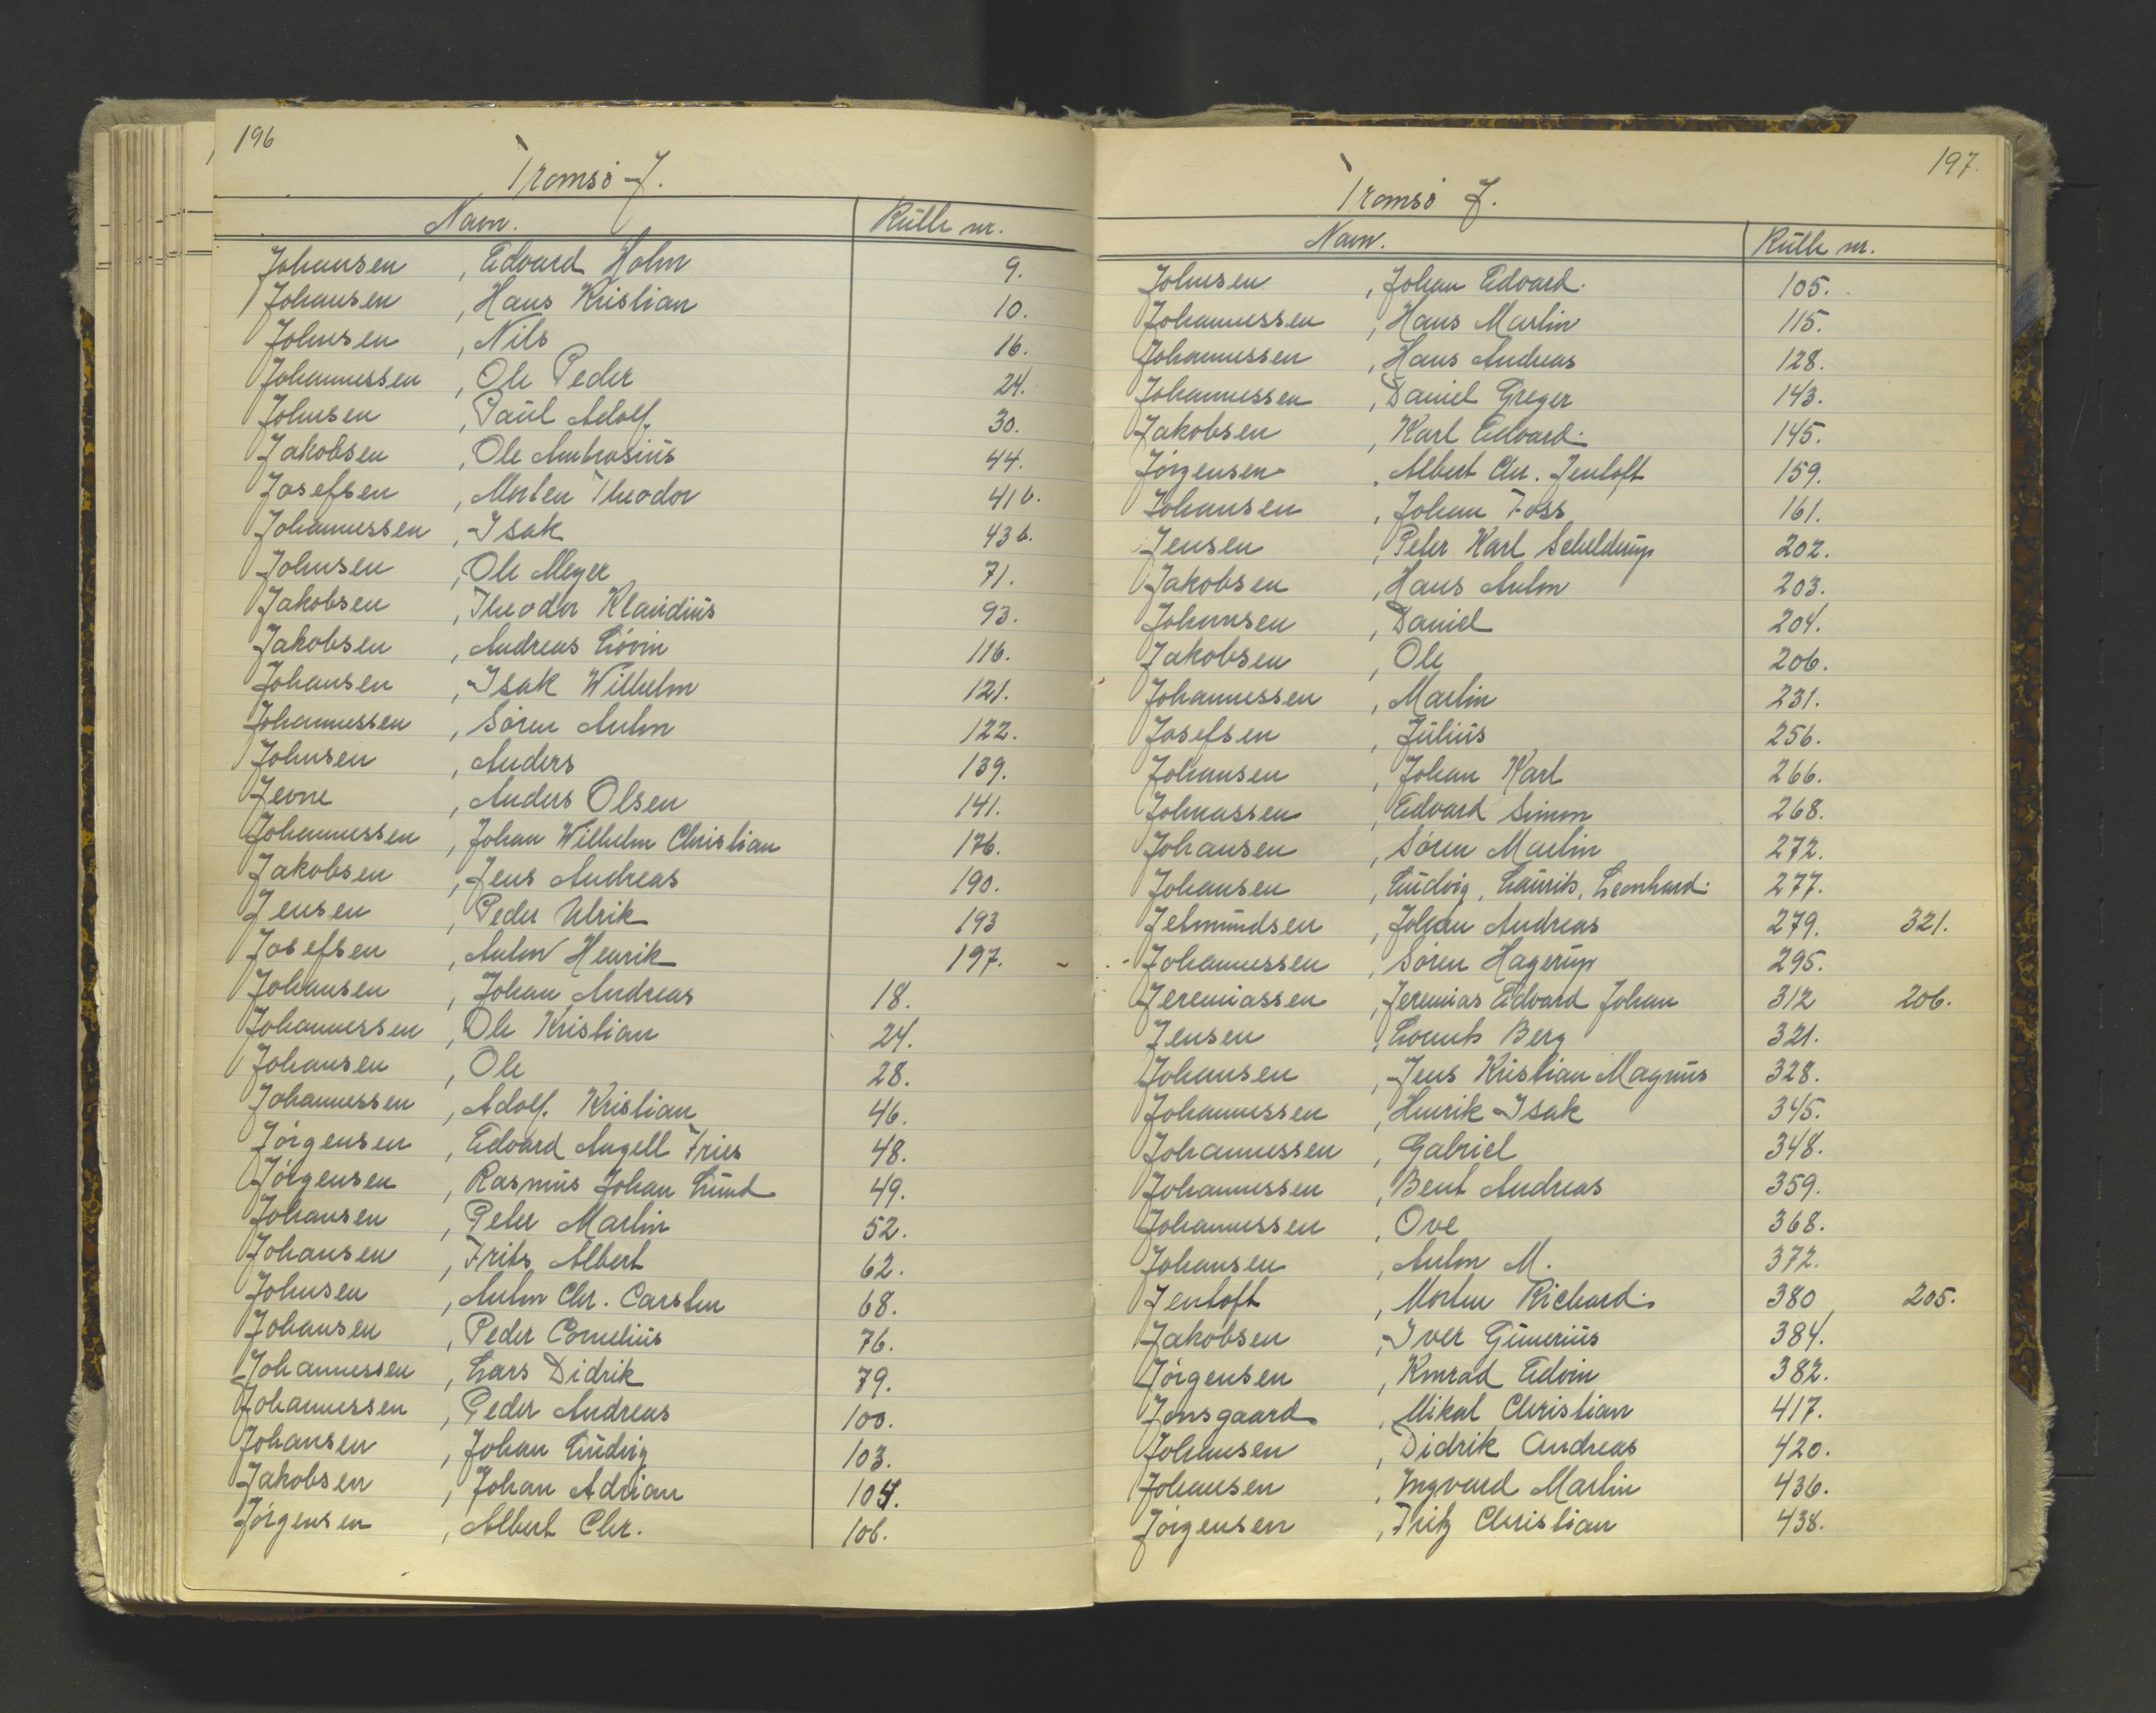 196
Tromsö J.
Navn. Rulle nr.
Johansen , Edvard Holm 9.
Johansen , Hans Kristian 10.
Johnsen , Nils 16.
Johannessen , Ole Peder 24.
Johnsen , Paul Adolf. 30.
Jakobsen , Ole Ambrosius 44.
Josefsen , Morten Theodor 41 b.
Johannessen , Isak 43 b.
Johnsen , Ole Meyer 71.
Jakobsen , Theodor Klaudius 93.
Jakobsen , Andreas Lövin 116.
Johansen , Isak Wilhelm 121.
Johannessen , Sören Anton 122.
Johnsen , Anders 139.
Jevne , Anders Olsen 141.
Johannessen , Johan Wilhelm Christian 176.
Jakobsen , Jens Andreas 190.
Jensen , Peder Ulrik 193
Josefsen , Anton Henrik 197.
Johansen , Johan Andreas 18.
Johannessen , Ole Kristian 24.
Johansen , Ole 28.
Johannessen , Adolf. Kristian 46.
Jörgensen , Edvard Angell Fries 48.
Jörgensen , Rasmus Johan Lund 49.
Johansen , Peter Martin 52.
Johansen , Frits Albert 62.
Johnsen , Anton Chr. Carsten 68.
Johansen , Peder Cornelius 76.
Johannessen , Lars Didrik 79.
Johannessen , Peder Andreas 100.
Johansen , Johan Ludvig 103.
Jakobsen , Johan Adrian 104.
Jörgensen , Albert Chr. 106.
197.
Tromsö J.
Navn. Rulle nr.
Johnsen , Johan Edvard. 105.
Johannessen , Hans Martin 115.
Johannessen , Hans Andreas 128.
Johannessen , Daniel Greger 143.
Jakobsen , Karl Edvard. 145.
Jörgensen , Albert Chr. Jentoft 159.
Johansen , Johan Foss 161.
Jensen , Peter Karl Schelderup 202.
Jakobsen , Hans Anton 203.
Johansen , Daniel 204.
Jakobsen , Ole 206.
Johannessen , Martin 231.
Josefsen , Julius 256.
Johansen , Johan Karl 266.
Johnassen , Edvard Simon 268.
Johansen , Sören Martin 272.
Johansen , Ludvig, Laurits, Leonhard. 277.
Jelmundsen , Johan Andreas 279. 321.
Johannessen , Sören Hagerup 295.
Jeremiassen , Jeremias Edvard Johan 312 206.
Jensen , Lornts Berg 321.
Johansen , Jens Kristian Magnus 328.
Johannessen , Henrik Isak 345.
Johannessen , Gabriel 348.
Johannessen , Bent Andreas 359.
Johannessen , Ove 368.
Johansen , Anton M. 372.
Jentoft , Morten Richard. 380 205.
Jakobsen , Iver Gunerius 384.
Jörgensen , Konrad Edvin 382.
Jonsgaard , Mikal Christian 417.
Johansen , Didrik Andreas 420.
Johansen , Yngvard Martin 436.
Jörgensen , Fritz Christian 438.